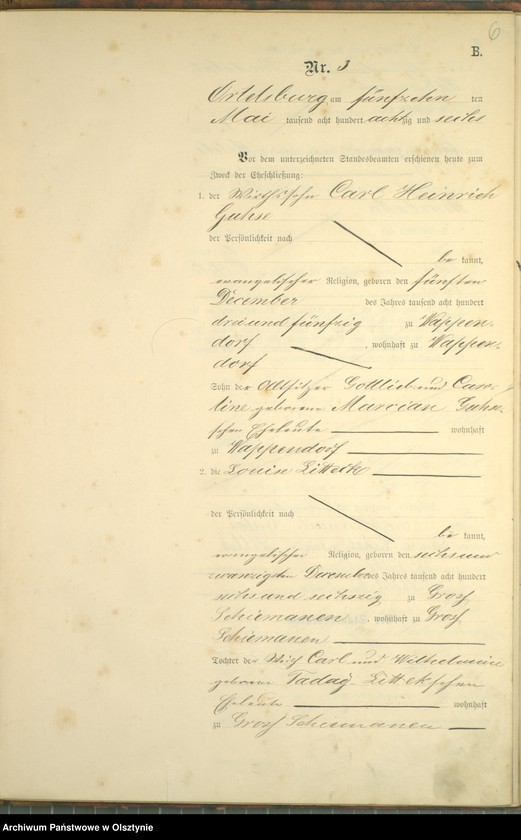 6
B.
Nr. 3
Ortelsburg am fünfzehn ten
Mai tausend acht hundert achtzig und sechs
Vor dem unterzeichneten Standesbeamten erschienen heute zum
Zweck der Eheschließung:
1. der Wirthssohn Carl Heinrich
Guhse
der Persönlichkeit nach
be kannt,
evangelischer Religion, geboren den fünften
December des Jahres tausend acht hundert
drei und fünfzig zu Wappen-
dorf , wohnhaft zu Wappen-
dorf
Sohn der Altsitzer Gottlieb und Caro-
line geborene Marcian Guhse-
schen Eheleute wohnhaft
zu Wappendorf
2. die Louise Zittek
der Persönlichkeit nach
be kannt,
evangelischer Religion, geboren den sechs und
zwanzigsten December des Jahres tausend acht hundert
sechs und sechszig zu Gross
Schiemanen , wohnhaft zu Gross
Schiemanen
Tochter der Wirth Carl und Wilhelmine
geborene Zittekschen
Eheleute wohnhaft
zu Gross Schiemanen
Archiwum Państwowe w Olsztynie